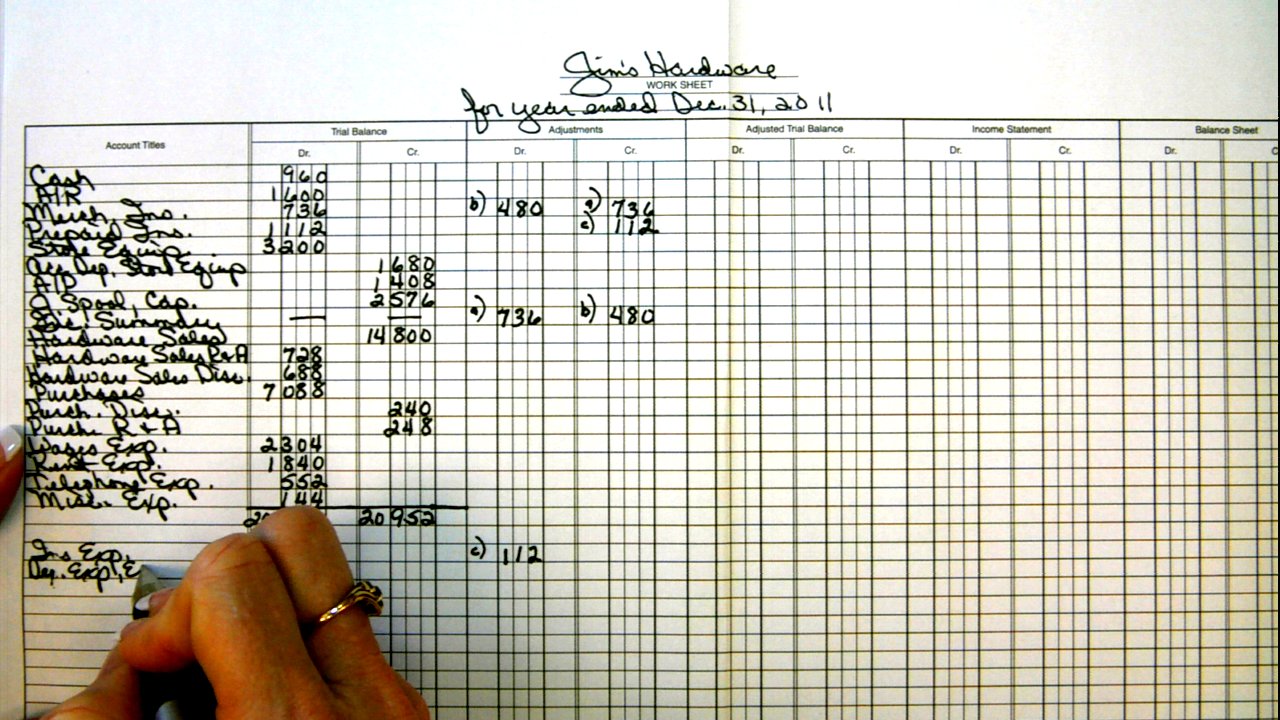 Jim's Hardware
WORK SHEET
for year ended Dec. 31, 2011
Account Titles Trial Balance Adjustments Adjusted Trial Balance Income Statement Balance Sheet
Dr. Cr. Dr. Cr. Dr. Cr. Dr. Cr. Dr. C
Cash 960
A/R 1600
Merch. Ins. 736 b) 480 a) 736
Prepaid Ins. 1112 c) 112
Store Equip. 3200
Acc. Dep. Store Equip 1680
A/P 1408
J. Spool, Cap. 2576
Inc. Summary — — a) 736 b) 480
Hardware Sales 14800
Hardware Sales R&A 728
Hardware Sales Disc. 688
Purchases 7088
Purch. Disc. 240
Purch. R & A 248
Wages Exp. 2304
Rent Exp. 1840
Telephone Exp. 552
Misc. Exp. 144
20 20952
Ins Exp. c) 112
Dep. Exp, E